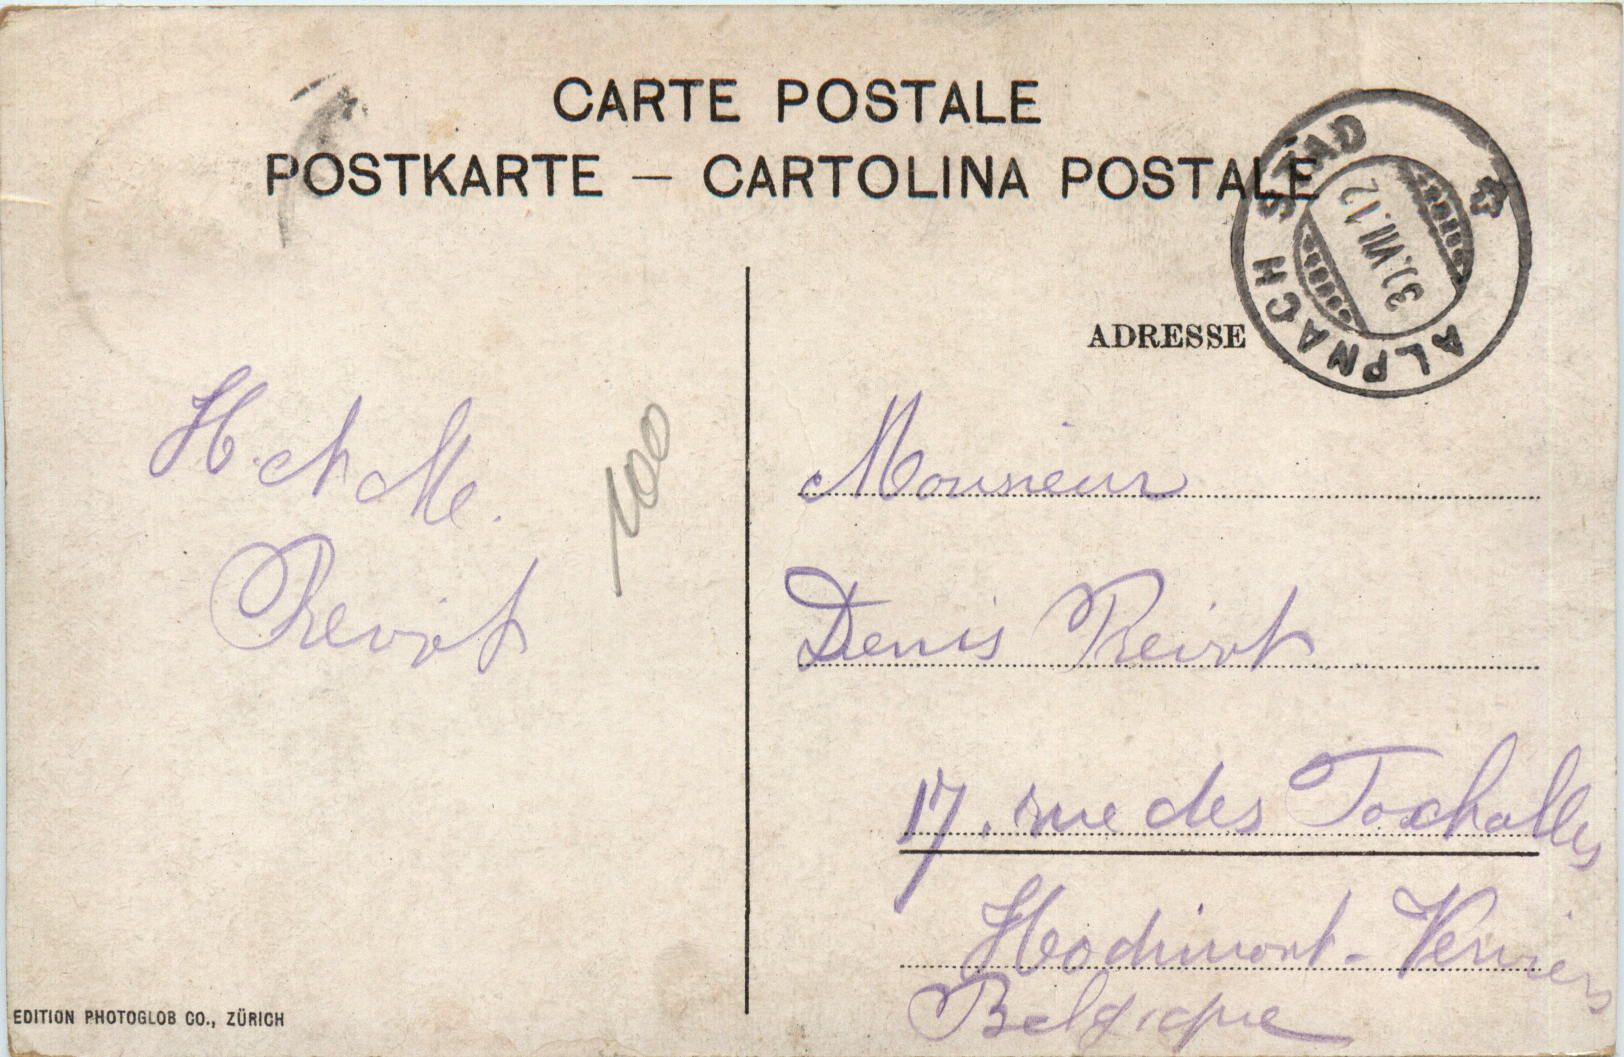 CARTE POSTALE
POSTKARTE — CARTOLINA POSTALE
ALPNACH STAD
31.VII.12
ADRESSE
H. et M.
100
Monsieur
Denis
17, rue des
Hodimont - Verviers
Belgique
EDITION PHOTOGLOB CO., ZÜRICH